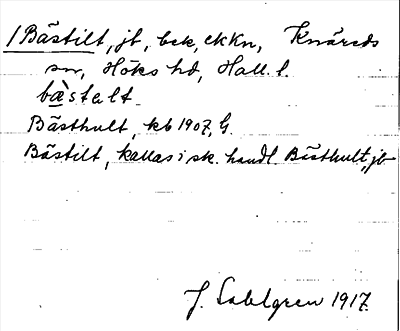 1 Bästilt, jb, bek, ekKn, Knäreds
sn, Höks hd, Hall. l.
bàstalt
Bästhult, kb 1907, G.
Bästilt, kallas i sk. handl. Bästhult, jb
J. Sahlgren 1917.